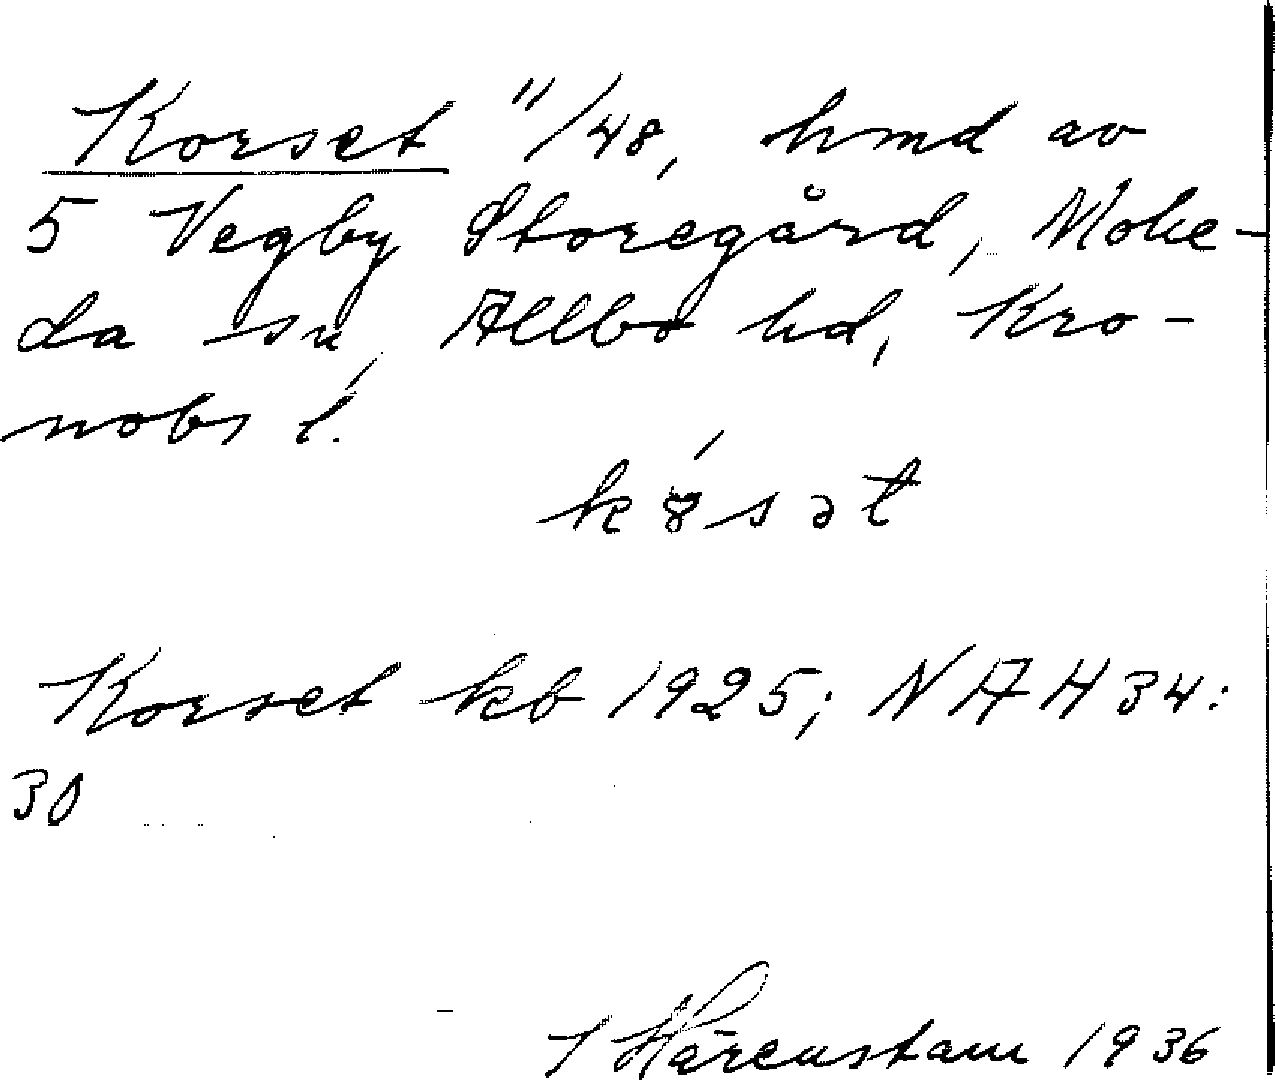 Korset 11/48, hmd av
5 Vegby Storegård, Mohe-
da sn, Allbo hd, Kro-
nobs l.
kɤ́sət
Korset kb 1925; NAH 34:
30
I Härenstam 1936